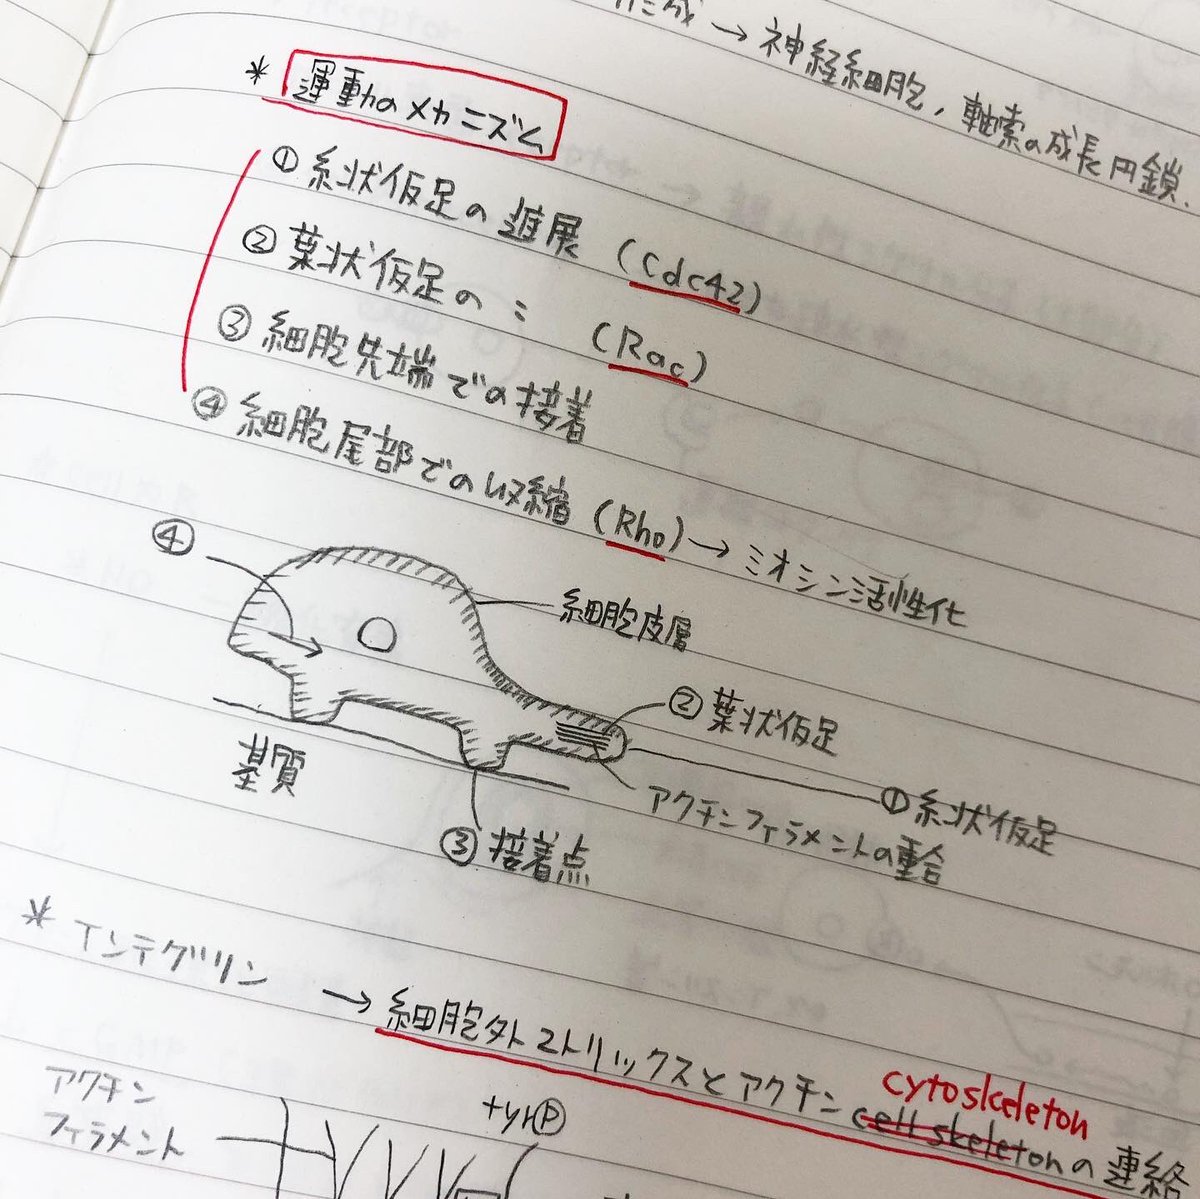 → 神経細胞, 軸索の成長円錐.
* 運動のメカニズム
① 糸状仮足の進展 (Cdc42)
② 葉状仮足の 〃 (Rac)
③ 細胞先端での接着
④ 細胞尾部での収縮 (Rho) → ミオシン活性化
④
細胞皮層
② 葉状仮足
① 糸状仮足
アクチンフィラメントの重合
基質
③ 接着点
* インテグリン → 細胞外マトリックスとアクチン cell skeleton の連絡
cytoskeleton
アクチン
フィラメント
tyr Ⓟ